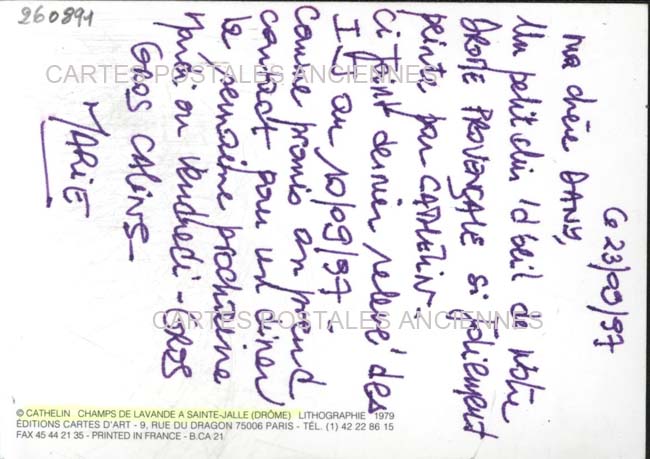 260894
CARTES POSTALES ANCIENNES
Ce 23/09/97
ma chère DANY,
Un petit clin d'œil de notre
DRÔME PROVENÇALE si joliement
peinte par CATHELIN.
Ci joint dernier relevé des
au 10/09/97.
Comme promis on prend
contact pour un dîner
la semaine prochaine
Mardi ou Vendredi - GROS
GROS CALINS -
MARIE
CARTES POSTALES ANCIENNES
© CATHELIN CHAMPS DE LAVANDE A SAINTE-JALLE (DRÔME) LITHOGRAPHIE 1979
ÉDITIONS CARTES D'ART - 9, RUE DU DRAGON 75006 PARIS - TÉL. (1) 42 22 86 15
FAX 45 44 21 35 - PRINTED IN FRANCE - B.CA 21